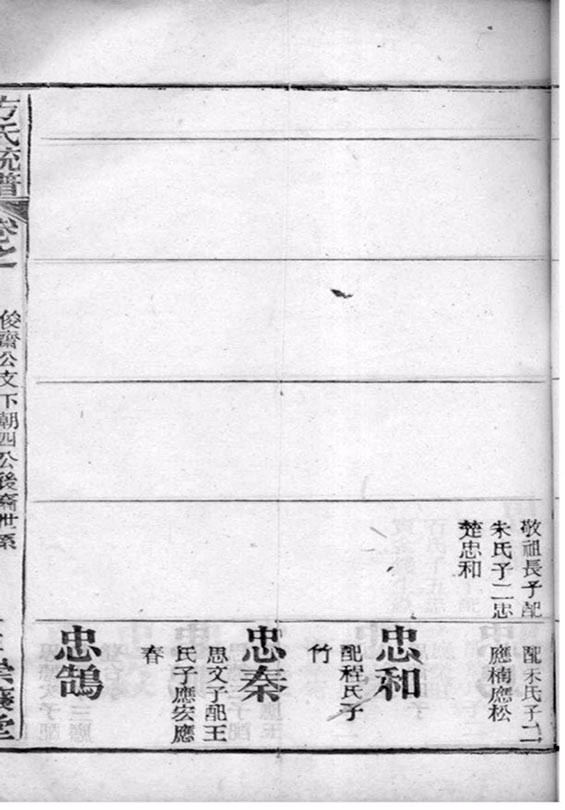 敬祖長子配
朱氏子二忠
楚忠和
配朱氏子二
應楠應松
忠和
配程氏子
竹
忠秦
思文子配王
氏子應宏應
春
忠鵠
方氏統譜
卷之一
俊齋公文下朝四公後裔世系